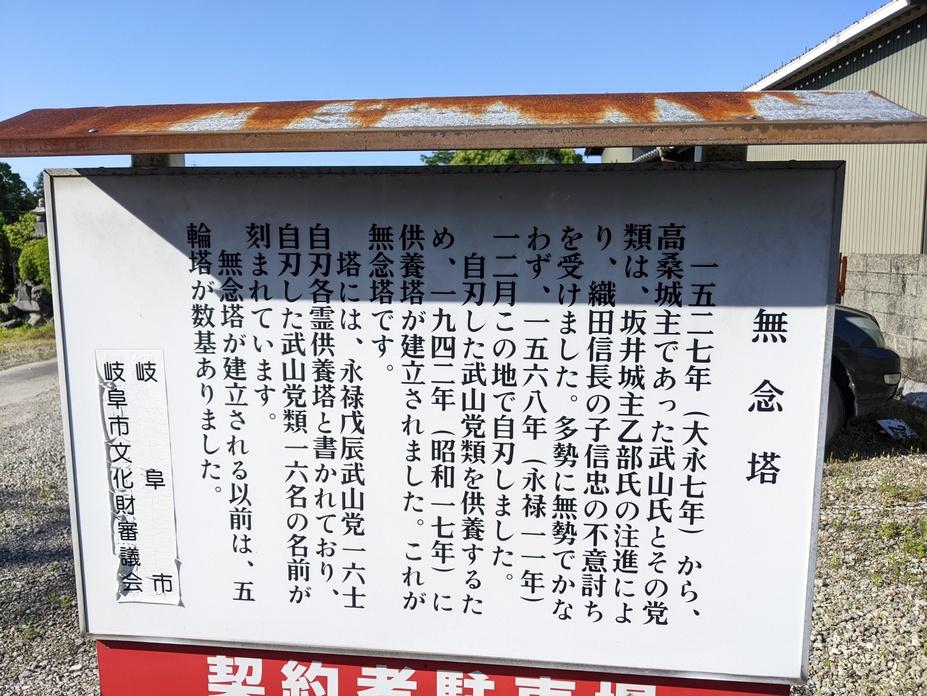 無念塔
一五二七年（大永七年）から、
高桑城主であった武山氏とその党
類は、坂井城主乙部氏の注進によ
り、織田信長の子信忠の不意討ち
を受けました。多勢に無勢でかな
わず、一五六八年（永禄一一年）
一二月この地で自刃しました。
自刃した武山党類を供養するた
め、一九四二年（昭和一七年）に
供養塔が建立されました。これが
無念塔です。
塔には、永禄戊辰武山党一六士
自刃各霊供養塔と書かれており、
自刃した武山党類一六名の名前が
刻まれています。
無念塔が建立される以前は、五
輪塔が数基ありました。
岐阜市
岐阜市文化財審議会
契約者駐車場